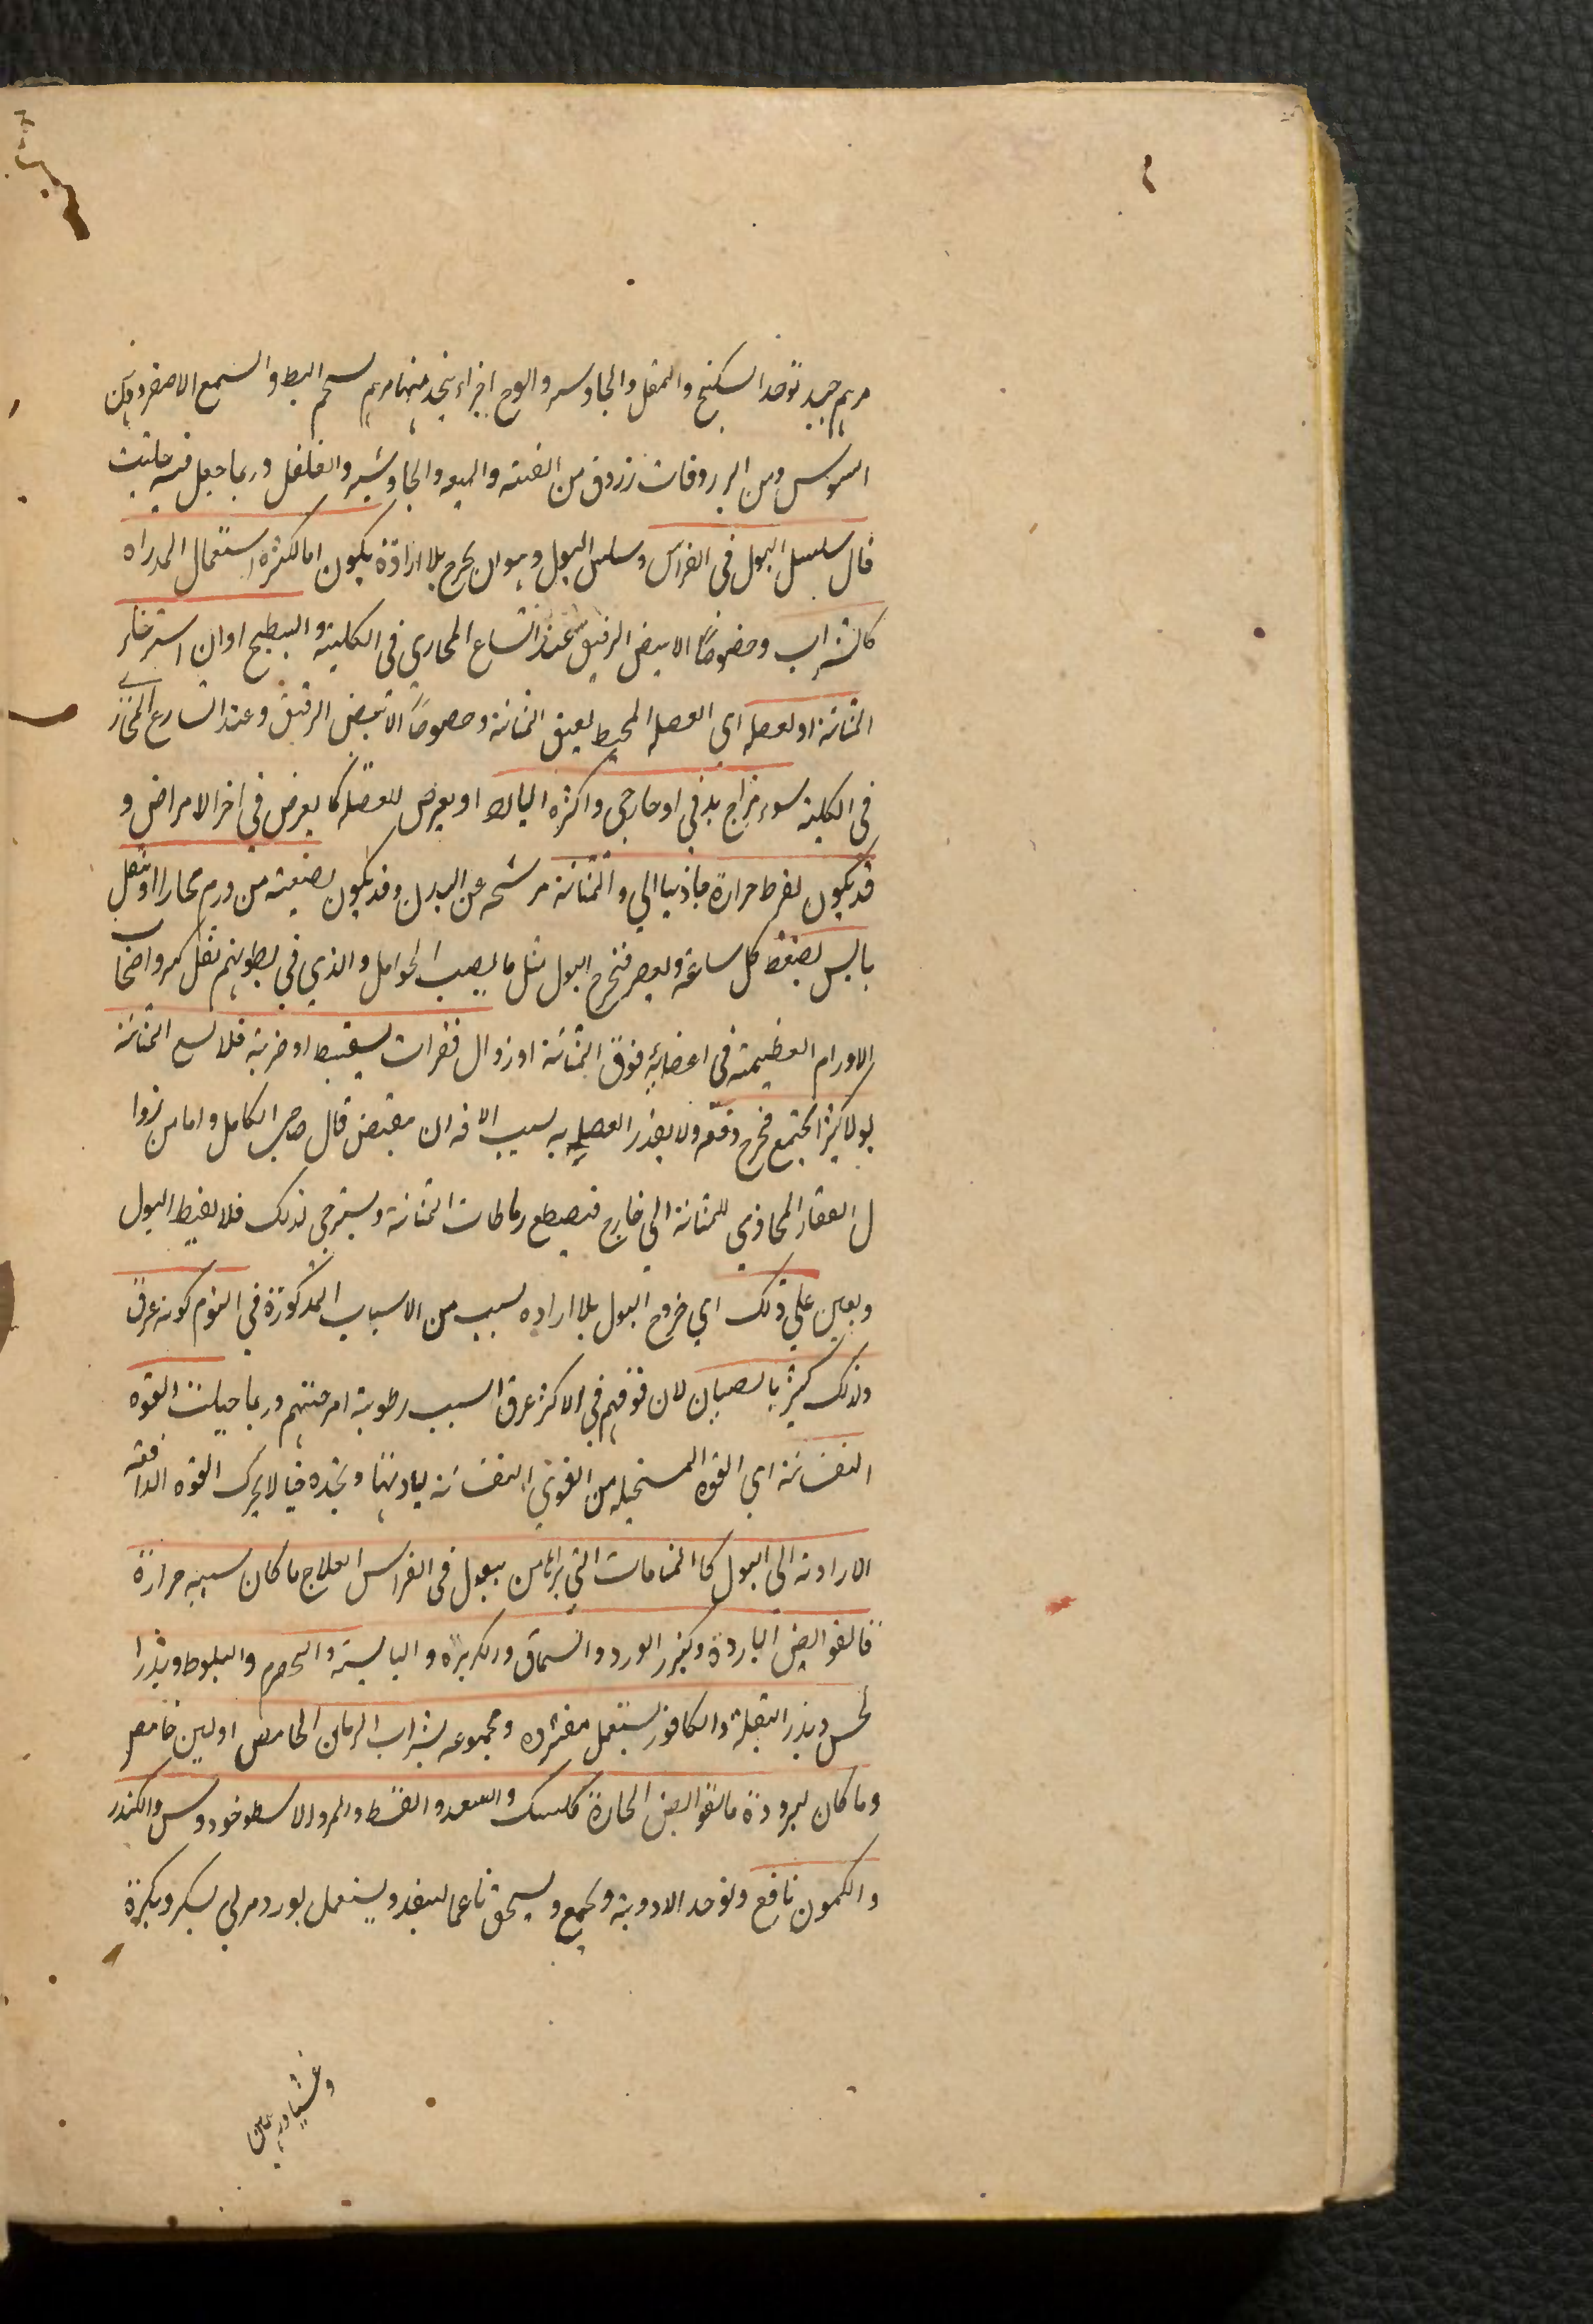 مرهم جيد توخذ السكبنج والمقل والجاوسر والوج اجزاء يتخذ منها مرهم بشحم البط والشمع الاصفر ودهن
السوس ومن الزروقات زروق من القنه والميعه والجاوشير والفلفل وربما جعل فيه حلتيت
قال سلسل البول فى الفراش وسلس البول وهو ان يخرج بلا ارادة يكون اما لكثرة استعمال المدراه
كالشراب وخصوصًا الابيض الرقيق عند اتساع المجاري فى الكلية والبطيخ او ان استرخاء
المثانة او لعضله اي العضله المحيط بعنق المثانة وخصوصًا الابيض الرقيق وعند اتساع المجاري
فى الكلية سوء مزاج بدني او خارجي واكثره البارد او يعرض للعضلة كما يعرض في اخر الامراض و
قد يكون لفرط حرارة جاذبيا الي والمثانة مرشحه عن البدن وقد يكون لضغيته من ورم مجارا او ثقل
يابس يضغط كل ساعة ويعصر فتخرج البول مثل ما يصيب الحوامل والذي في بطونهم ثقل كبر واصحاب
الاورام العظيمة فى اعضاية فوق المثانة او زوال فقرات بسقيط او ضربة فلا يسع المثانة
بولا كثيرا يجتمع فخرج دفعه ولا يقدر العضليه بسبب الافه ان مقبض قال صاحب الكامل واما من زوا
ل الفقار المحاذي للمثانة الي خارج فتصطع رباطات المثانة ويسترخي لذلك فلا يضبط البول
ويعين علي ذلك اي خروج البول بلا اراده بسبب من الاسباب المذكورة في النوم كونه غرق
ولذلك كثيرا بالصبيان لان نومهم في الاكثر غرق السبب رطوبة امزجتهم وربما خيلت القوه
النفسانة اي القوه المتخيله من القوي النفسانه لبادنها وتخده خيالا يحرك القوه الدافعة
الارادية الي البول كا المنامات التي يراها من يبول فى الفراس العلاج ما كان سببه حرارة
فالقوابض الباردة وكبزر الورد والسماق والكزبرة و اليابسة والحصرم والبلوط وبذرا
لخس وبذر البقلة والكافور يستعمل مفتردة ومجموعه بشراب الرمان الحامض او لبن حامض
وما كان لبرودة ما لقوابض الحارة كلسك والسعد والقسط والمر والاسطوخودوس والكندر
والكمون نافع وتوخذ الادوية وتجمع ويسحق ناعما لينفذ ويستعمل بورد مربي بسكر وبكرة
وعشيا ودهن